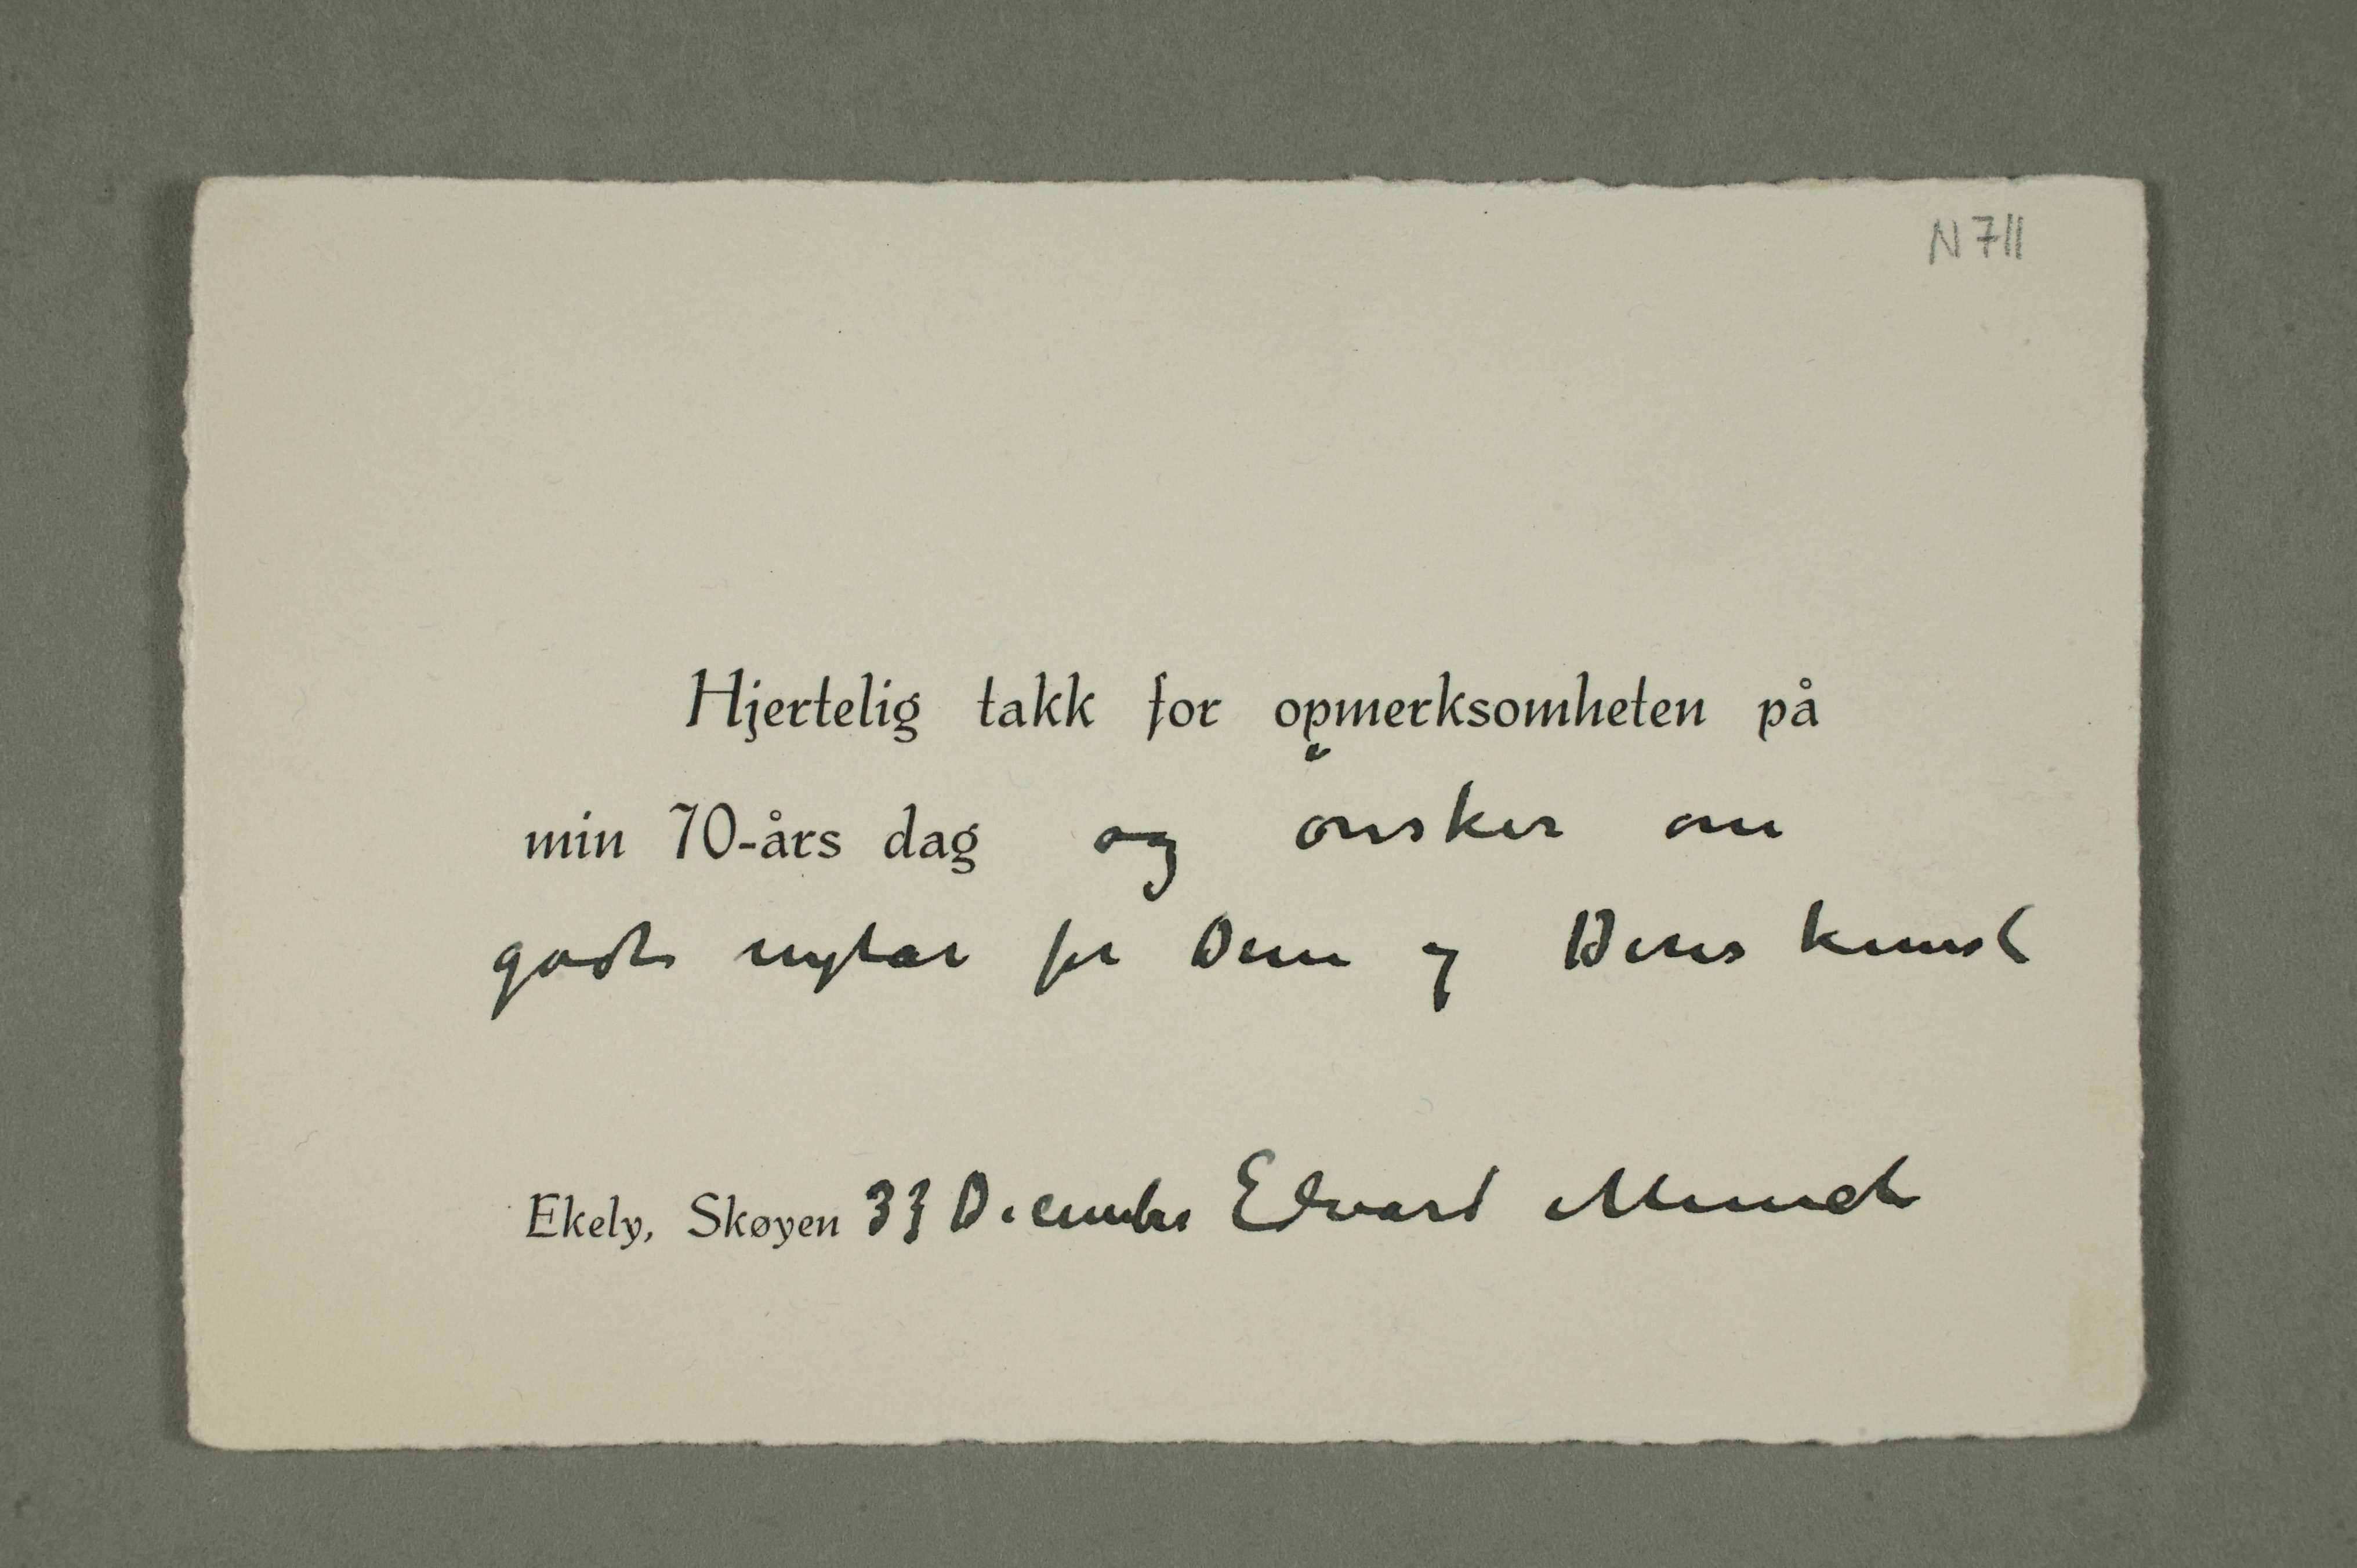 N 711
Hjertelig takk for opmerksomheten på
min 70-års dag og önsker om
godt nytar for Dem og Deres kunst
Ekely, Skøyen 33 December Edvard Munch